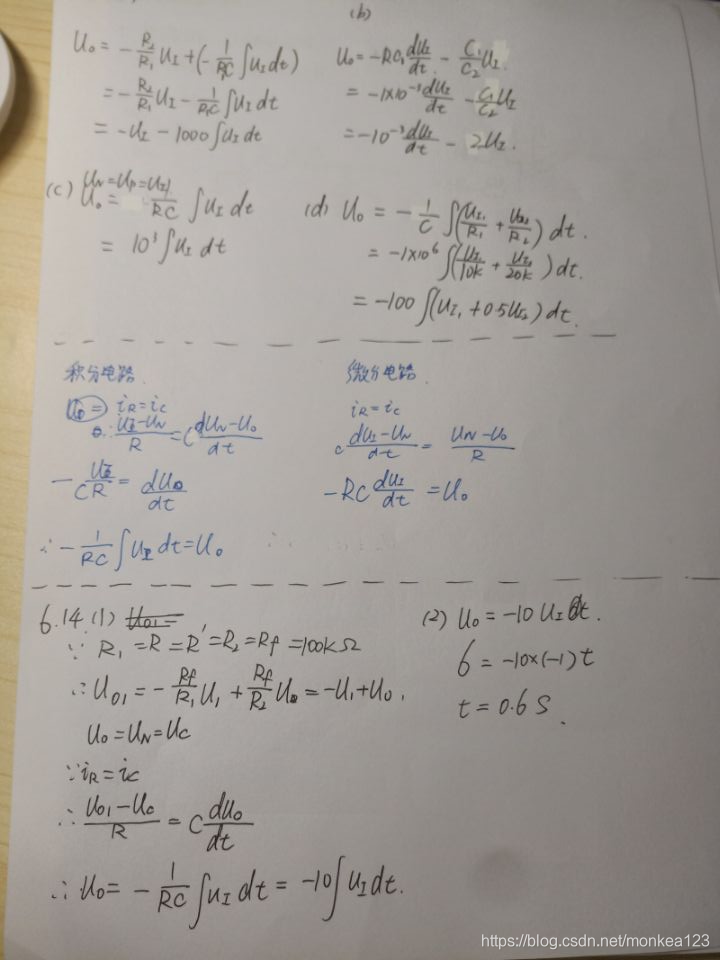 U₀ = -R₂/R₁ U_I + (-1/RC ∫u_I dt)
= -R₂/R₁ U_I - 1/R₁C ∫u_I dt
= -U_I - 1000 ∫u_I dt
(b)
U₀ = -RC₁ dU_I/dt - C₁/C₂ U_I
= -1×10⁻³ dU_I/dt - C₁/C₂ U_I
= -10⁻³ dU_I/dt - 2U_I.
(c) U_N = U_P = U_I/
U₀ = 1/RC ∫u_I dt
= 10³ ∫u_I dt
(d) U₀ = -1/C ∫(U_I₁/R₁ + U_I₂/R₂) dt.
= -1×10⁶ ∫(U_I₁/10k + U_I₂/20k) dt.
= -100 ∫(U_I₁ + 0.5U_I₂) dt.
积分电路.
U₀ = i_R = i_C
∴ U_I-U_N/R = C dU_N-U₀/dt
-U_I/CR = dU₀/dt
∴ -1/RC ∫u_I dt = U₀
微分电路.
i_R = i_C
C dU_I-U_N/dt = U_N-U₀/R
-RC dU_I/dt = U₀
6.14 (1) U₀₁ =
∵ R₁ = R = R' = R₂ = Rf = 100kΩ
∴ U₀₁ = -Rf/R₁ U₁ + Rf/R₂ U₀ = -U₁ + U₀.
U₀ = U_N = U_C
∵ i_R = i_C
∴ U₀₁-U₀/R = C dU₀/dt
∴ U₀ = -1/RC ∫u_I dt = -10∫u_I dt.
(2) U₀ = -10 U_I t.
6 = -10×(-1) t
t = 0.6 S.
https://blog.csdn.net/monkea123